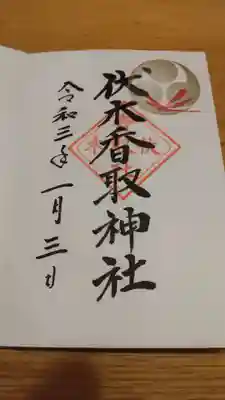 伏木香取神社
令和三年一月三日